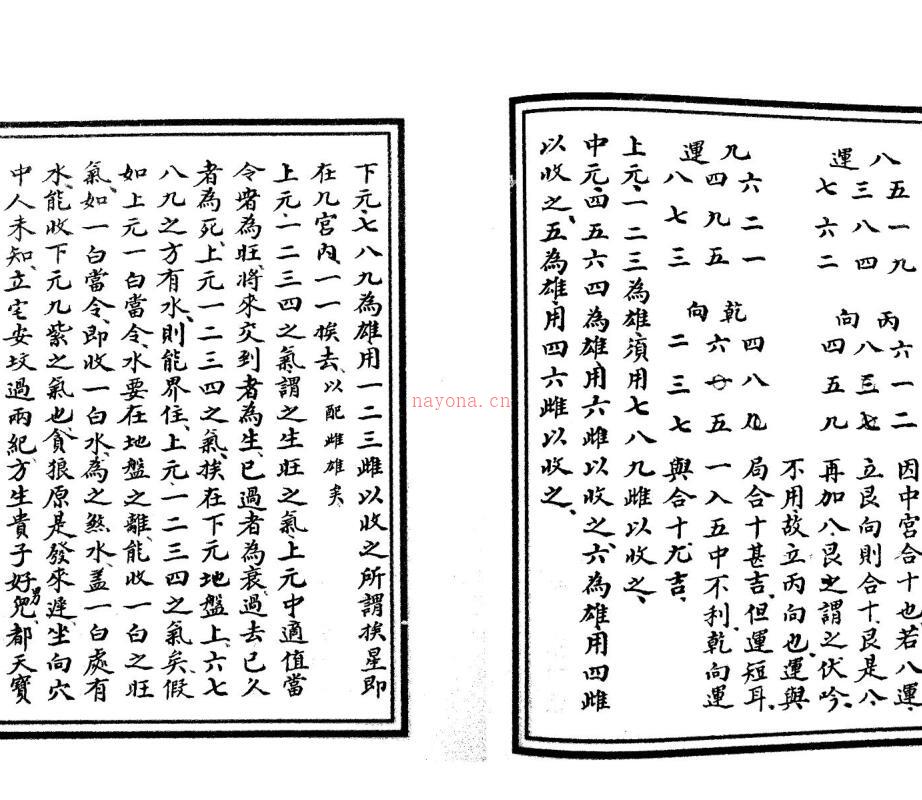 八運
五一九
三八四
七六二
丙向
六一二
八三七
四五九
因中宮合十也若八運、
立艮向則合十、艮是八、
再加八、艮之謂之伏吟、
不用、故立丙向也、運與
九運
六二一
四九五
八七三
乾向
四八九
六一五
二三七
局合十甚吉、但運短耳、
一入五中不利、乾向運
與合十、尤吉、
上元、一二三為雄、須用七八九雌以收之、
中元、四五六四為雄、用六雌以收之、六為雄、用四雌
以收之、五為雄、用四六雌以收之、
下元、七八九為雄用一二三雌以收之所謂挨星即
在九宮內一一挨去、以配雌雄矣、
上元、一二三四之氣謂之生旺之氣、上元中適值當
令者為旺、將來交到者為生、已過者為衰、過去已久
者為死、上元一二三四之氣、挨在下元地盤上、六七
八九之方有水、則能界住、上元一二三四之氣矣、假
如上元一白當令、水要在地盤之離、能收一白之旺
氣、如一白當令、即收一白水、為之煞水、蓋一白處有
水、能收下元九紫之氣也、貪狼原是發來遲、坐向穴
中人未知、立宅安墳過兩紀、方生貴子好男兒、都天寶
nayona.cn